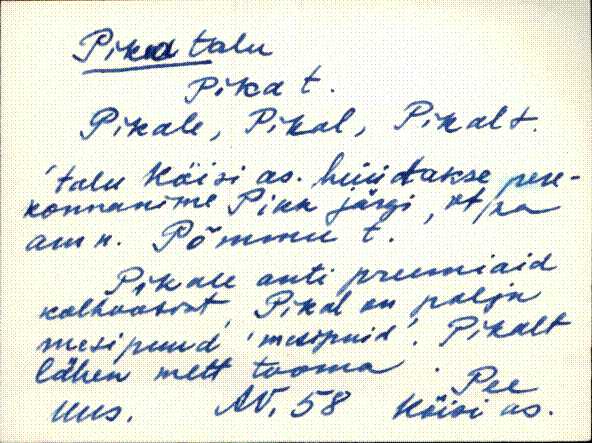 Pika talu
Pika t.
Pikale, Pikal, Pikalt.
'talu Köisi as. hüütakse pere-
konnanime Pikk järgi, vt ka
ann. Põmmu t.
Pikale anti preemiaid
kolhoosist, Pikal on palju
mesipuud 'mesipuid'. Pikalt
lähen mett tooma.
Pee
Uus. AV. 58 Köisi as.